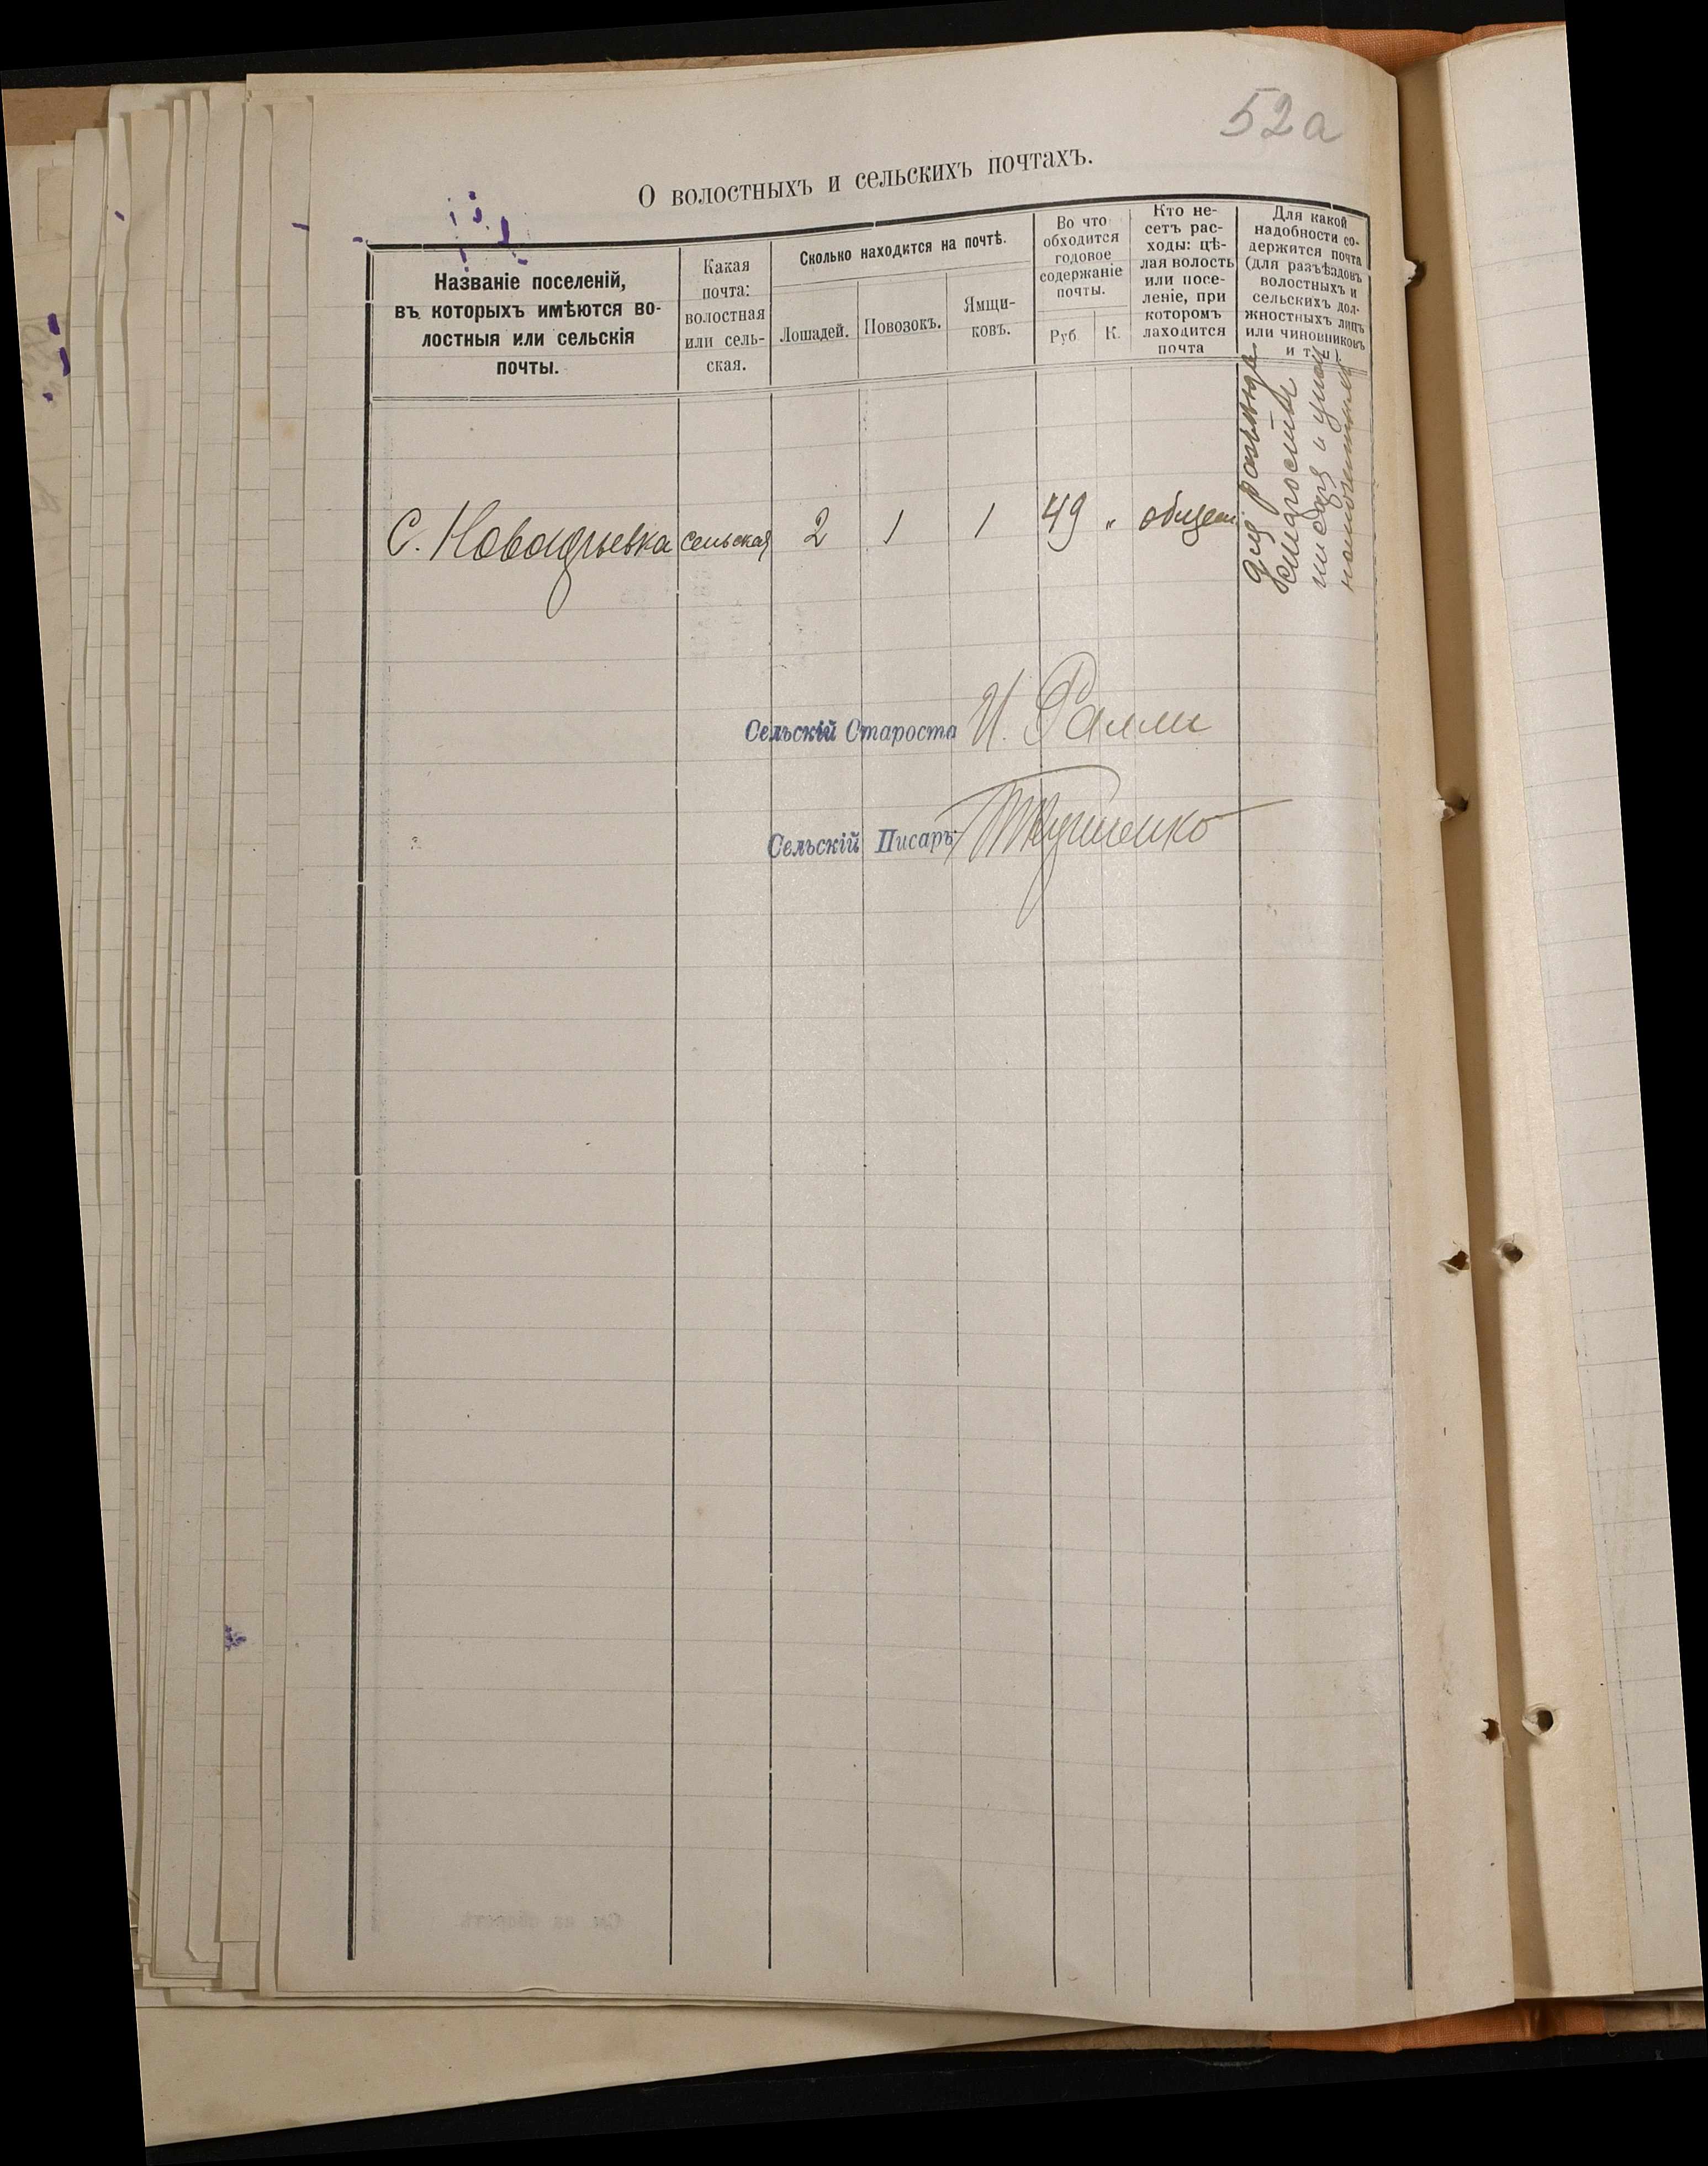 52а
О волостныхъ и сельскихъ почтахъ.
Названіе поселеній,
въ которыхъ имѣются во-
лостныя или сельскія
почты.
Какая
почта:
волостная
или сель-
ская.
Сколько находится на почтѣ.
Лошадей.
Повозокъ.
Ямщи-
ковъ.
Во что
обходится
годовое
содержаніе
почты.
Руб.
К.
Кто не-
сетъ рас-
ходы: цѣ-
лая волость
или посе-
леніе, при
которомъ
находится
почта
Для какой
надобности со-
держится почта
(для разъѣздовъ
волостныхъ и
сельскихъ дол-
жностныхъ лицъ
или чиновниковъ
и т. п).
С. Новоюрьевка сельская 2 1 1 49 „ общест
для разъѣзда
старосты
писаря и
Сельскій Староста И. Ралли
Сельскій Писарь